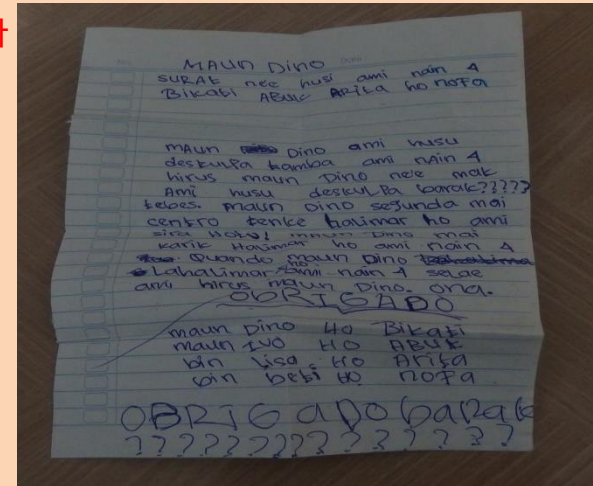 MAUN DINO
SURAt nee husi ami nain 4
Bikati ABUK ARita ho nofa
MAUN Dino ami husu
deskulpa tamba ami nAin 4
hirus maun Dino nee mak
Ami husu deskulpa barak?????
tebes. maun Dino segunda mai
centro tenke halimar ho ami
sira Hotu! maun Dino mai
karik Halimar ho ami nain 4
Quando maun Dino
Lahalimar ho ami nain 4 selae
ami hirus maun Dino. ona.
OBRIGADO
maun Dino Ho Bikati
maun IVO HO ABUK
bin lisa. Ho Arita
bin beti HO nofa
OBRIGADO baRak
? ? ? ? ? ? ? ? ? ? ? ? ? ?